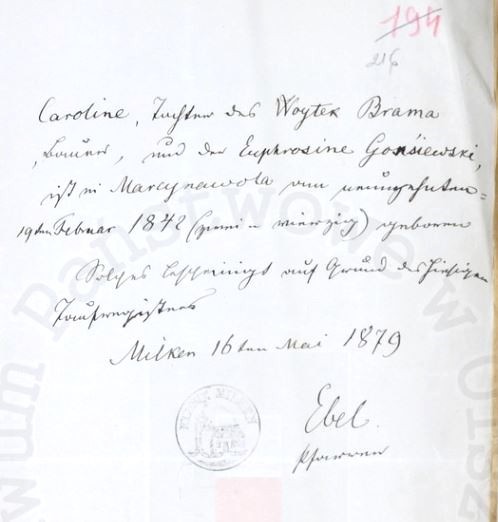 194
216
Caroline, Tochter des Woytek Brama
, Bauers, und der Euphrosine Gonsiewski,
ist in Marcynawola am neunzehnten=
19ten Februar 1842 (zwei u vierzig) geboren
Solches bescheinigt auf Grund des hiesigen
Taufregisters
Milken 16ten Mai 1879
Ebel.
Pfarrer
Państwowe w